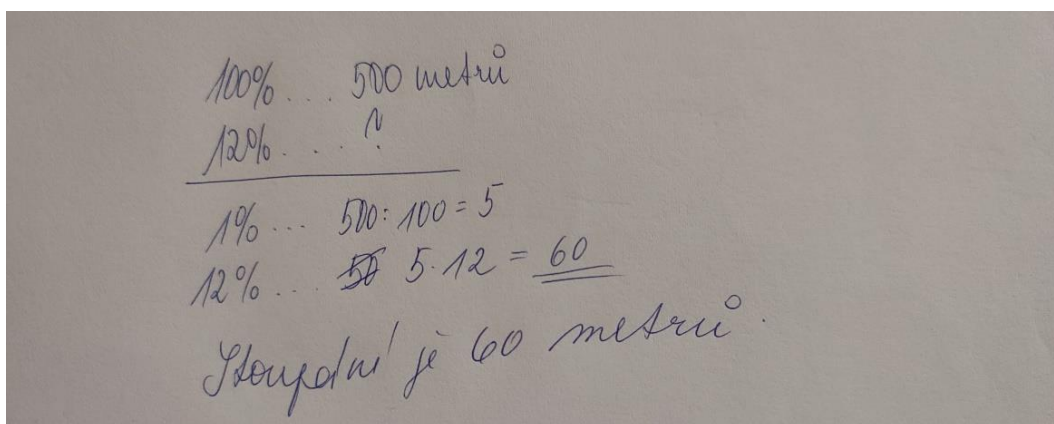 100% ... 500 metrů
12% ... ?
1% ... 500 : 100 = 5
12% ... 5 · 12 = 60
Stoupání je 60 metrů.